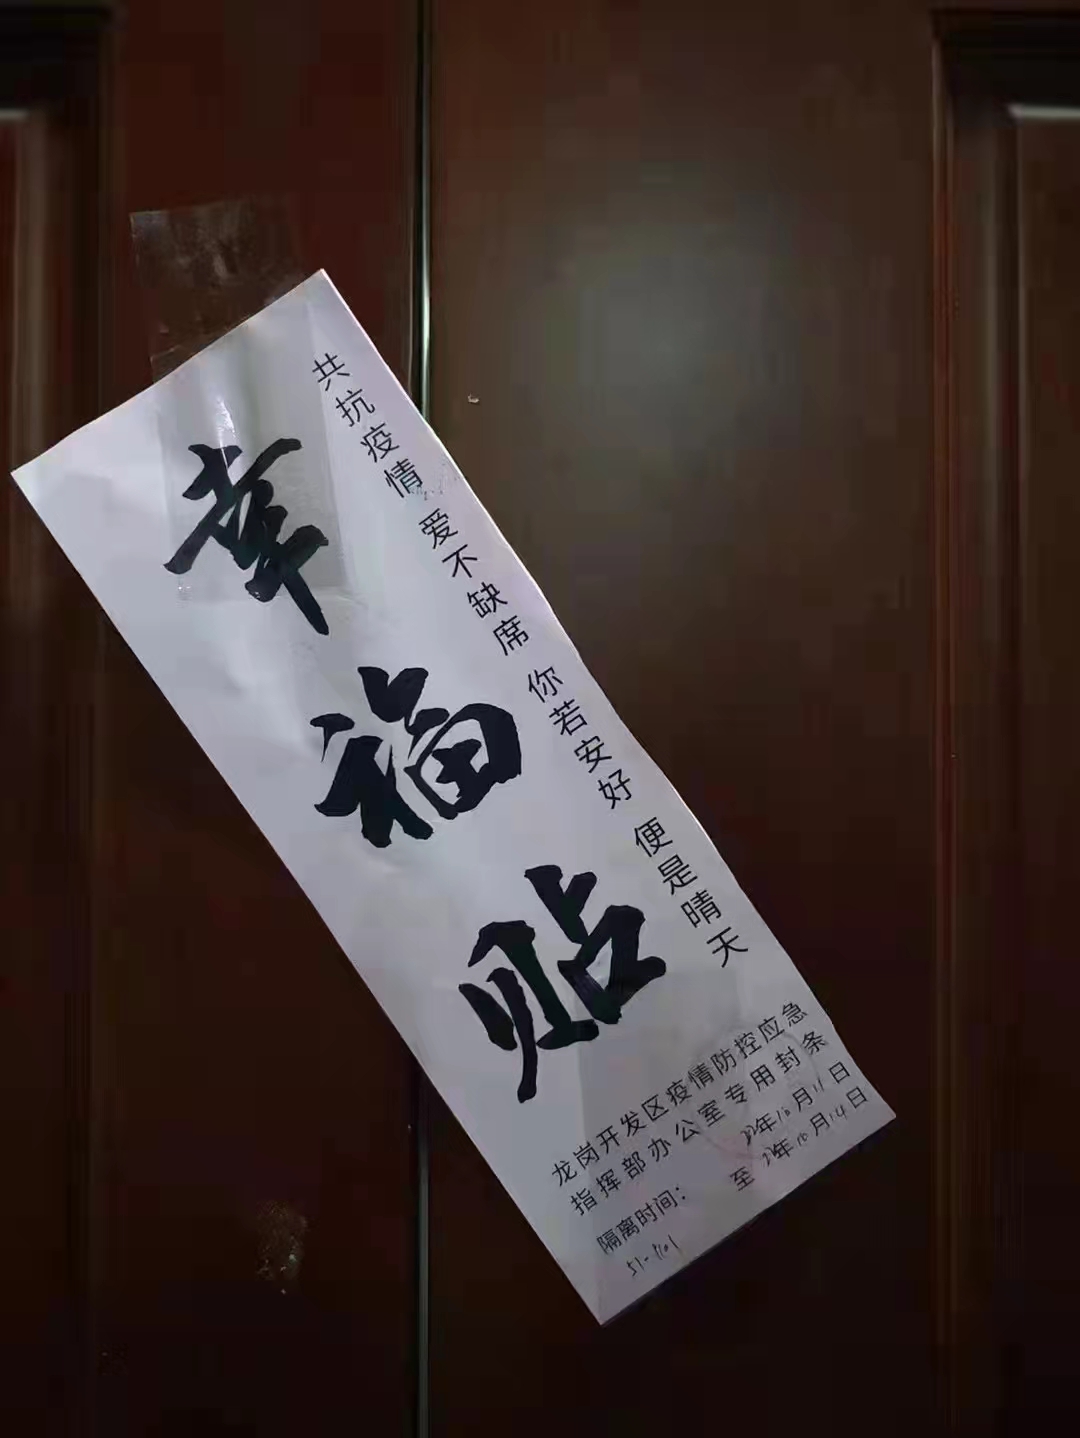 共抗疫情 爱不缺席 你若安好 便是晴天
幸福贴
龙岗开发区疫情防控应急
指挥部办公室专用封条
隔离时间： 22年10月11日
至 22年10月14日